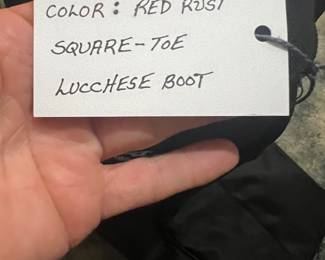 COLOR: RED RUST
SQUARE-TOE
LUCCHESE BOOT